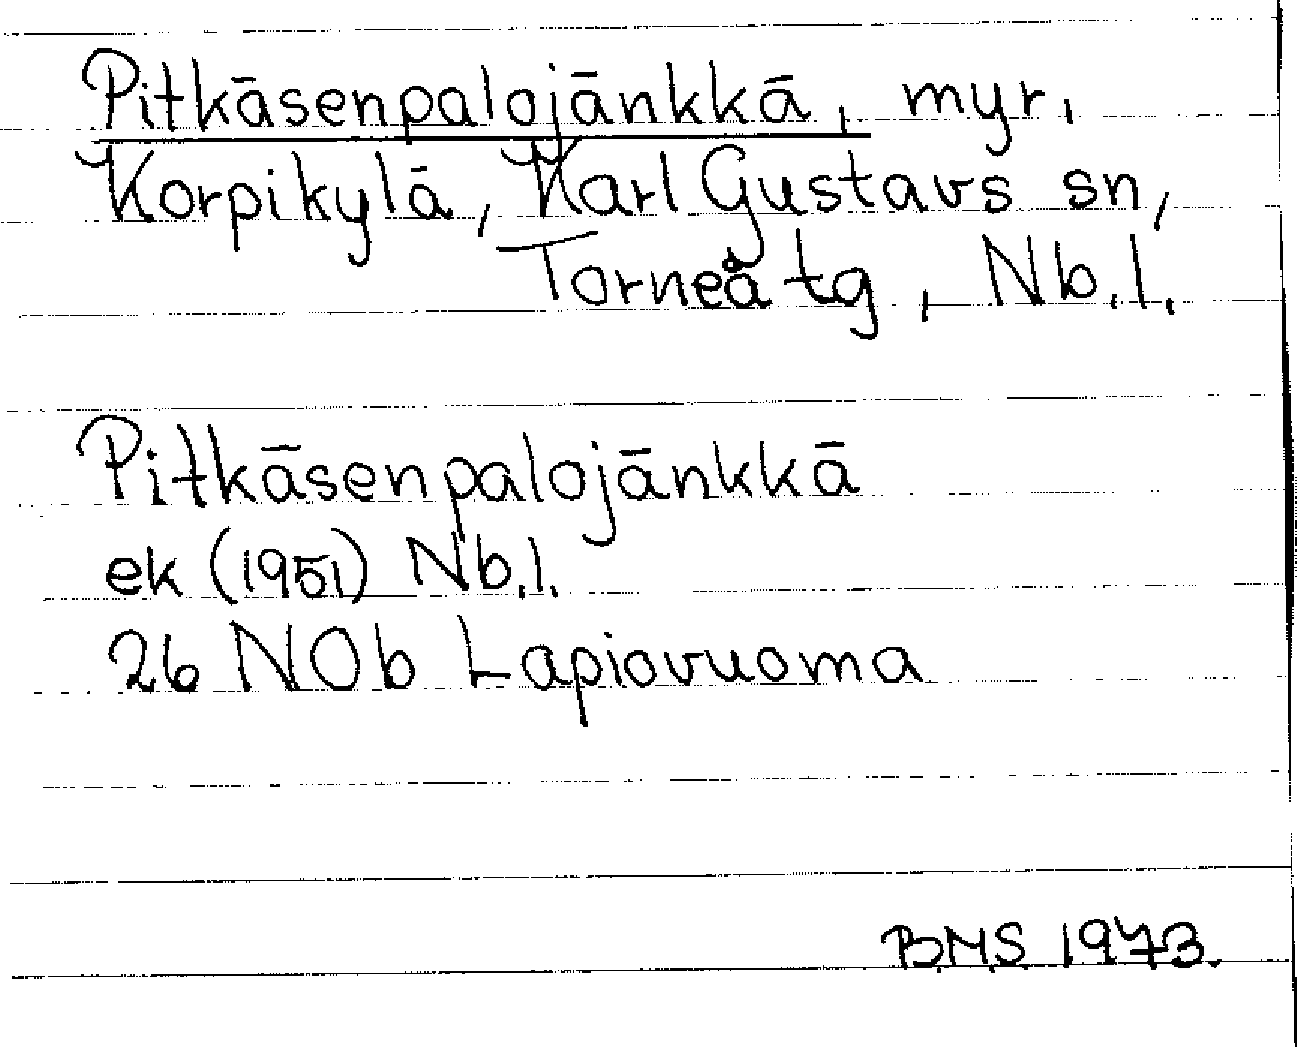 Pitkäsenpalojänkkä, myr,
Korpikylä, Karl Gustavs sn,
Torneå tg, Nb.l.
Pitkäsenpalojänkkä
ek (1951) Nb.l.
26 NOb Lapiovuoma
BMS 1973.